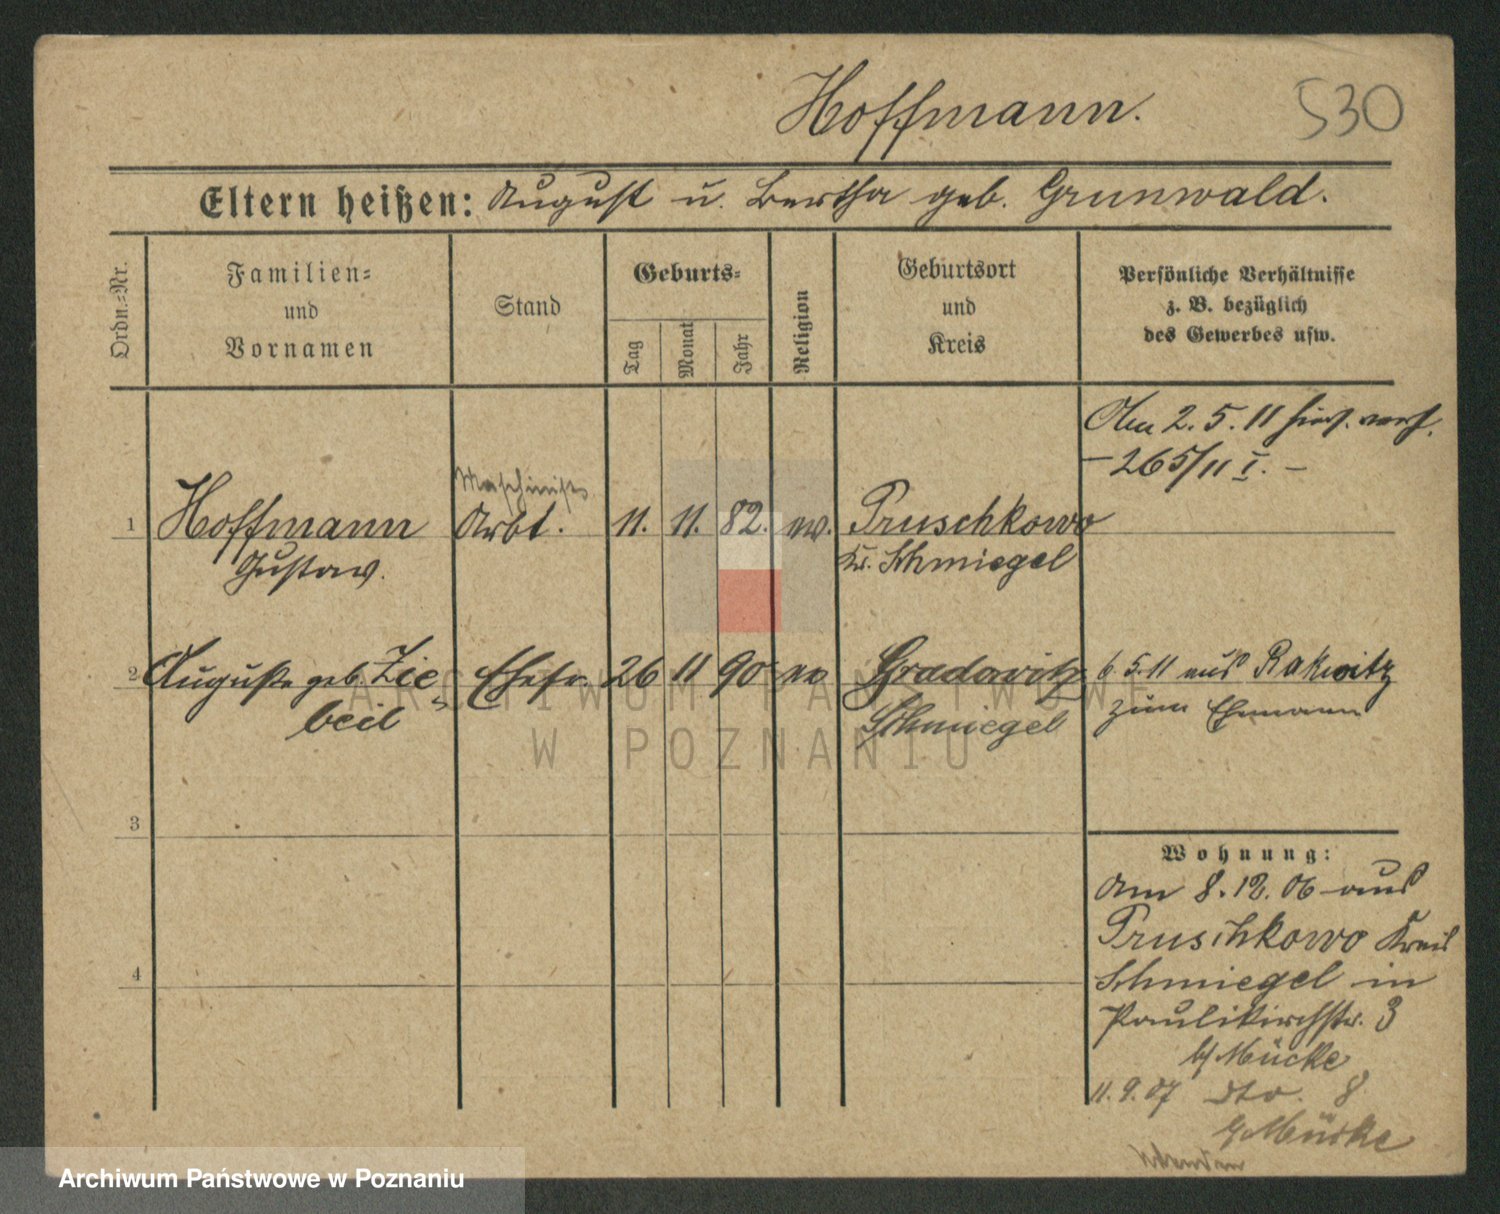 Hoffmann. 530
Eltern heißen: August u. Bertha geb. Grunwald.
Ordn.-Nr.
Familien-
und
Vornamen
Stand
Geburts-
Tag
Monat
Jahr
Religion
Geburtsort
und
Kreis
Persönliche Verhältnisse
z. B. bezüglich
des Gewerbes usw.
Am 2. 5. 11 hier. verh.
- 265/11 I. -
Maschinist
1 Hoffmann Arbt. 11. 11. 82. ev. Pruschkowo
Gustav. Kr. Schmiegel
2 Auguste geb. Zie- Ehefr. 26 11 90 ev Gradovitz 6. 5. 11 aus Rakwitz
beil Schmiegel zum Ehemann
3
4
Wohnung:
Am 8. 12. 06 aus
Pruschkowo Kreis
Schmiegel in
Paulikirchstr. 3
b/ Mücke
11. 9. 07 dto. 8
b/ Mücke
ARCHIWUM PAŃSTWOWE
W POZNANIU
Archiwum Państwowe w Poznaniu